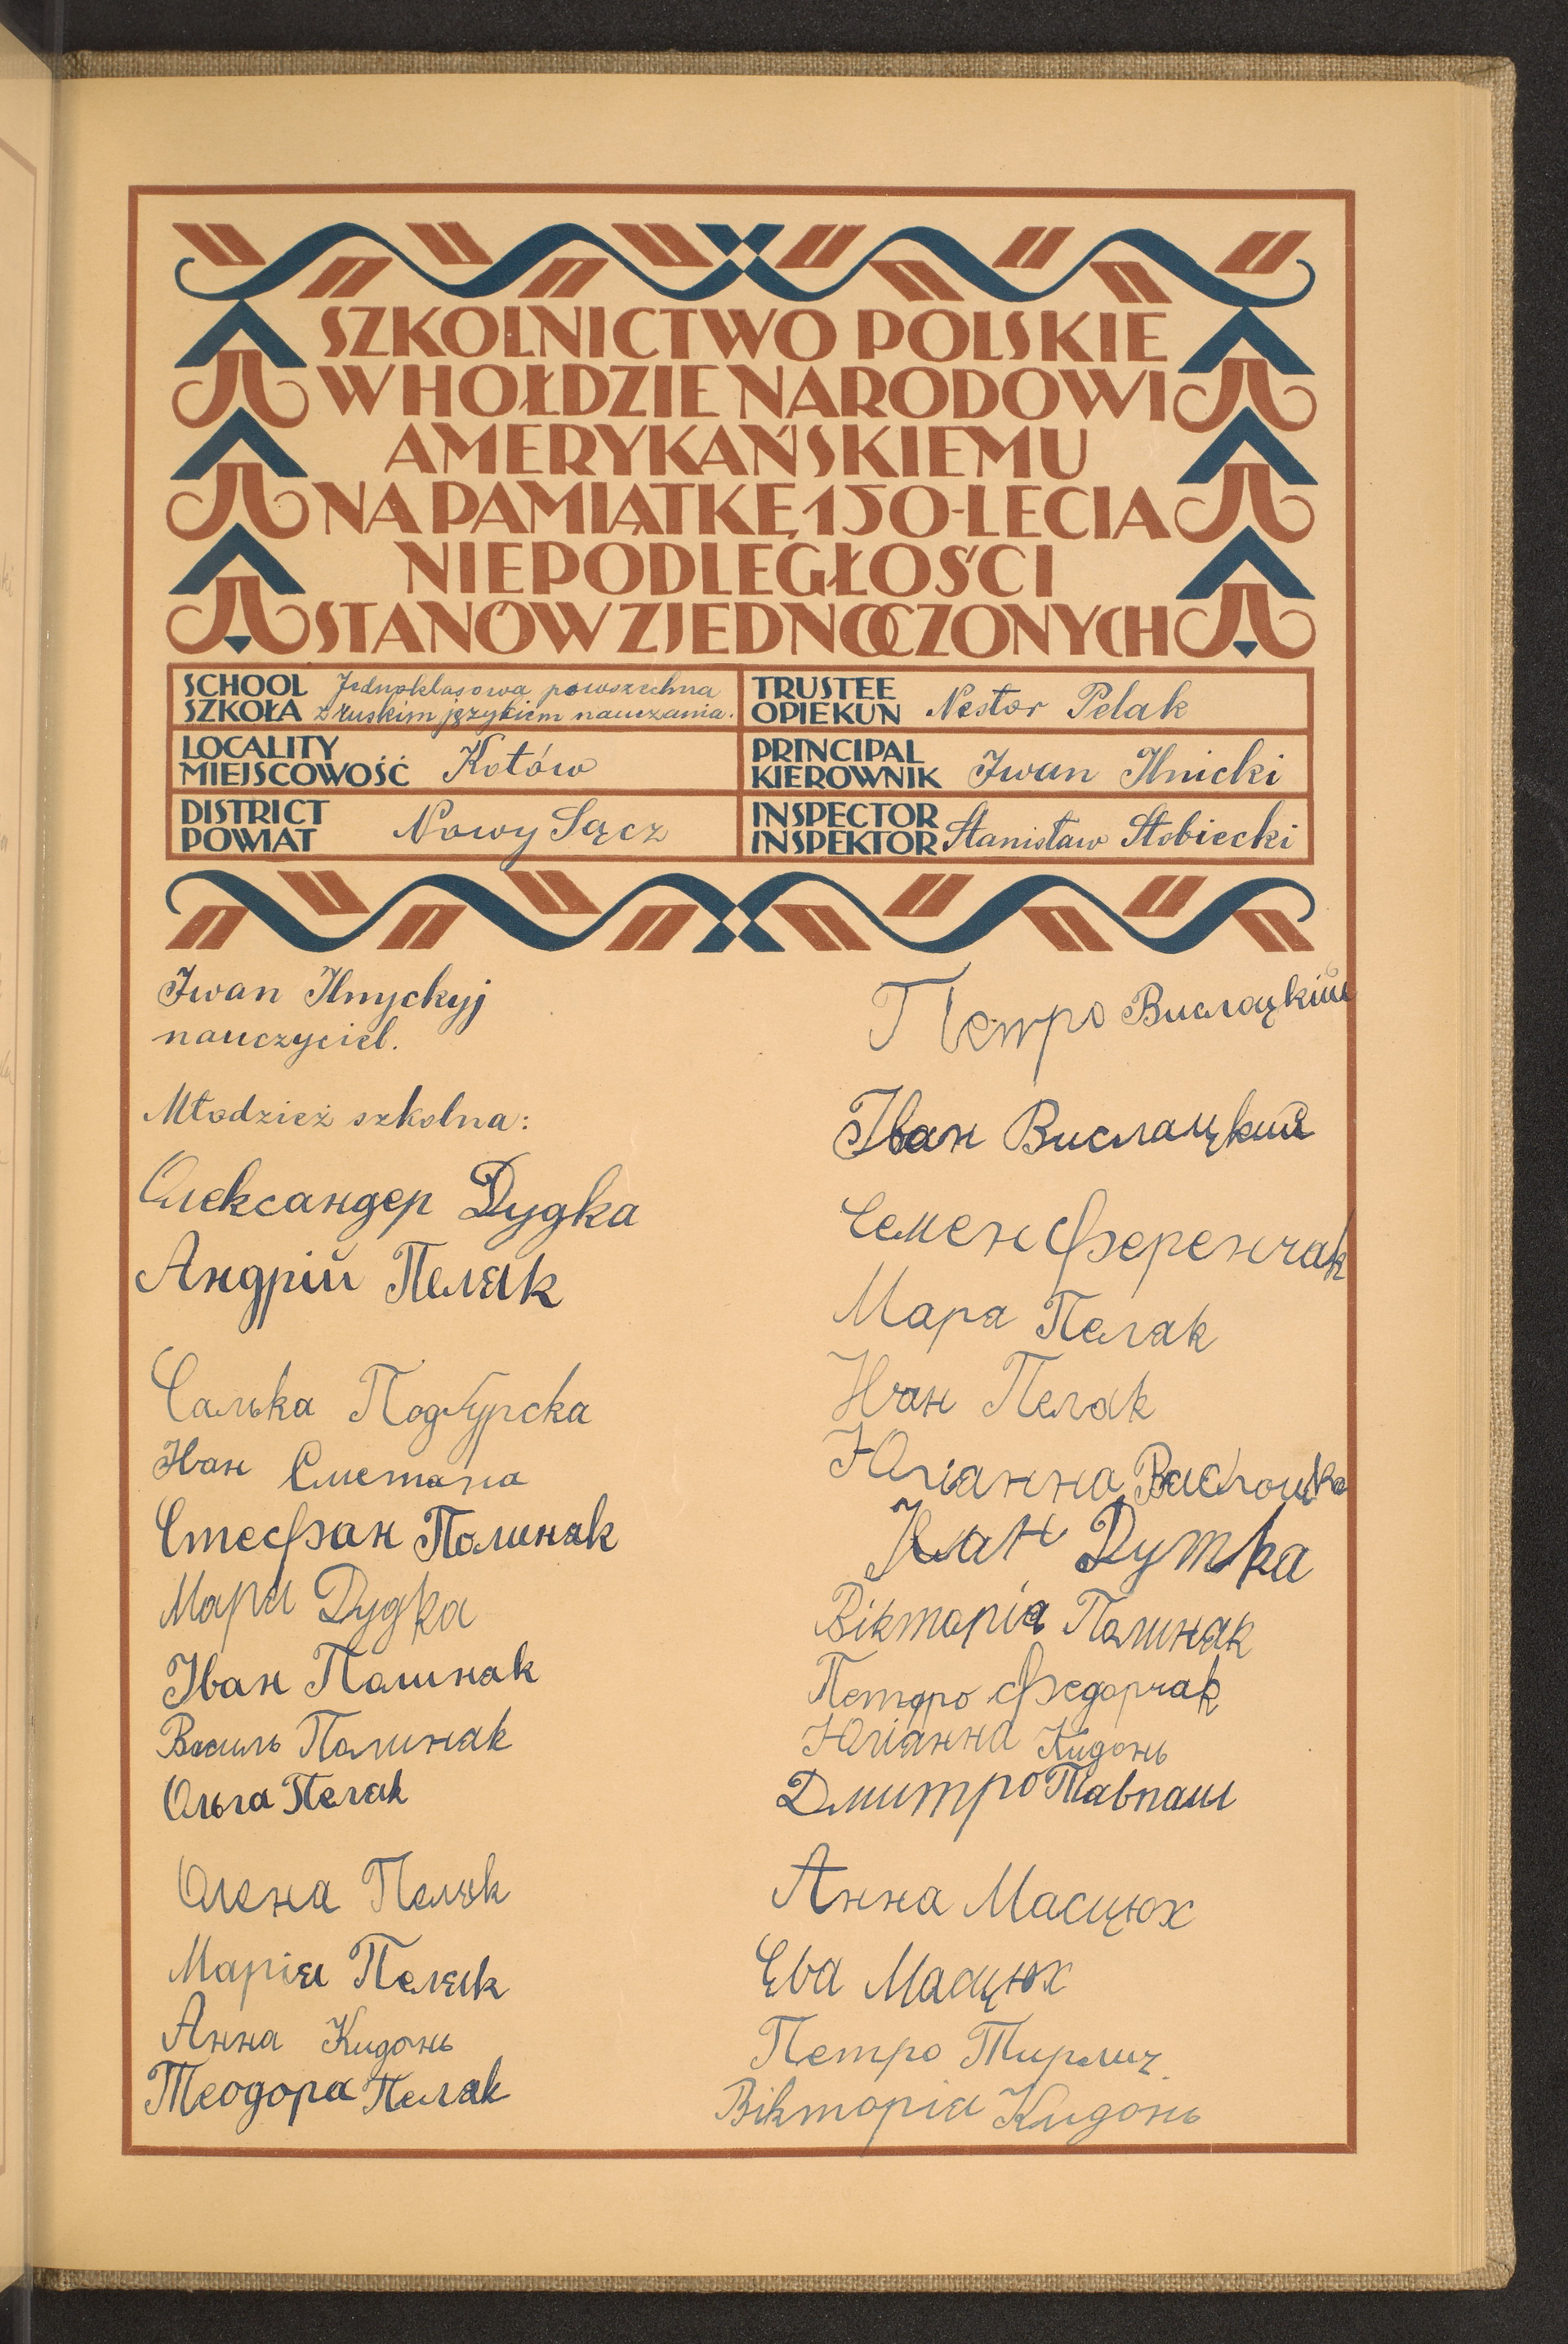 SZKOLNICTWO POLSKIE
W HOŁDZIE NARODOWI
AMERYKAŃSKIEMU
NA PAMIĄTKĘ 150-LECIA
NIEPODLEGŁOŚCI
STANÓW ZJEDNOCZONYCH
SCHOOL Jednoklasowa powszechna
SZKOŁA z ruskim językiem nauczania.
TRUSTEE
OPIEKUN Nestor Pelak
LOCALITY
MIEJSCOWOŚĆ Kotów
PRINCIPAL
KIEROWNIK Iwan Ilnicki
DISTRICT
POWIAT Nowy Sącz
INSPECTOR
INSPEKTOR Stanisław Stobiecki
Iwan Ilnyckyj
nauczyciel.
Młodzież szkolna:
Олександер Дудка
Андрій Пеляк
Салька Подбурска
Іван Сметана
Стефан Полиняк
Мария Дудка
Іван Полиняк
Василь Полиняк
Ольга Пеляк
Олена Пеляк
Марія Пеляк
Анна Кидонь
Теодора Пеляк
Петро Вислоцкий
Іван Вислацкий
Семен Ференчак
Мара Пелак
Іван Пелак
Юліанна
Іван Дутка
Вікторія Полиняк
Петро Федорчак
Юліанна Кидонь
Дмитро Павпаш
Анна Масцюх
Ева Масцюх
Петро Тирлич
Вікторія Кидонь